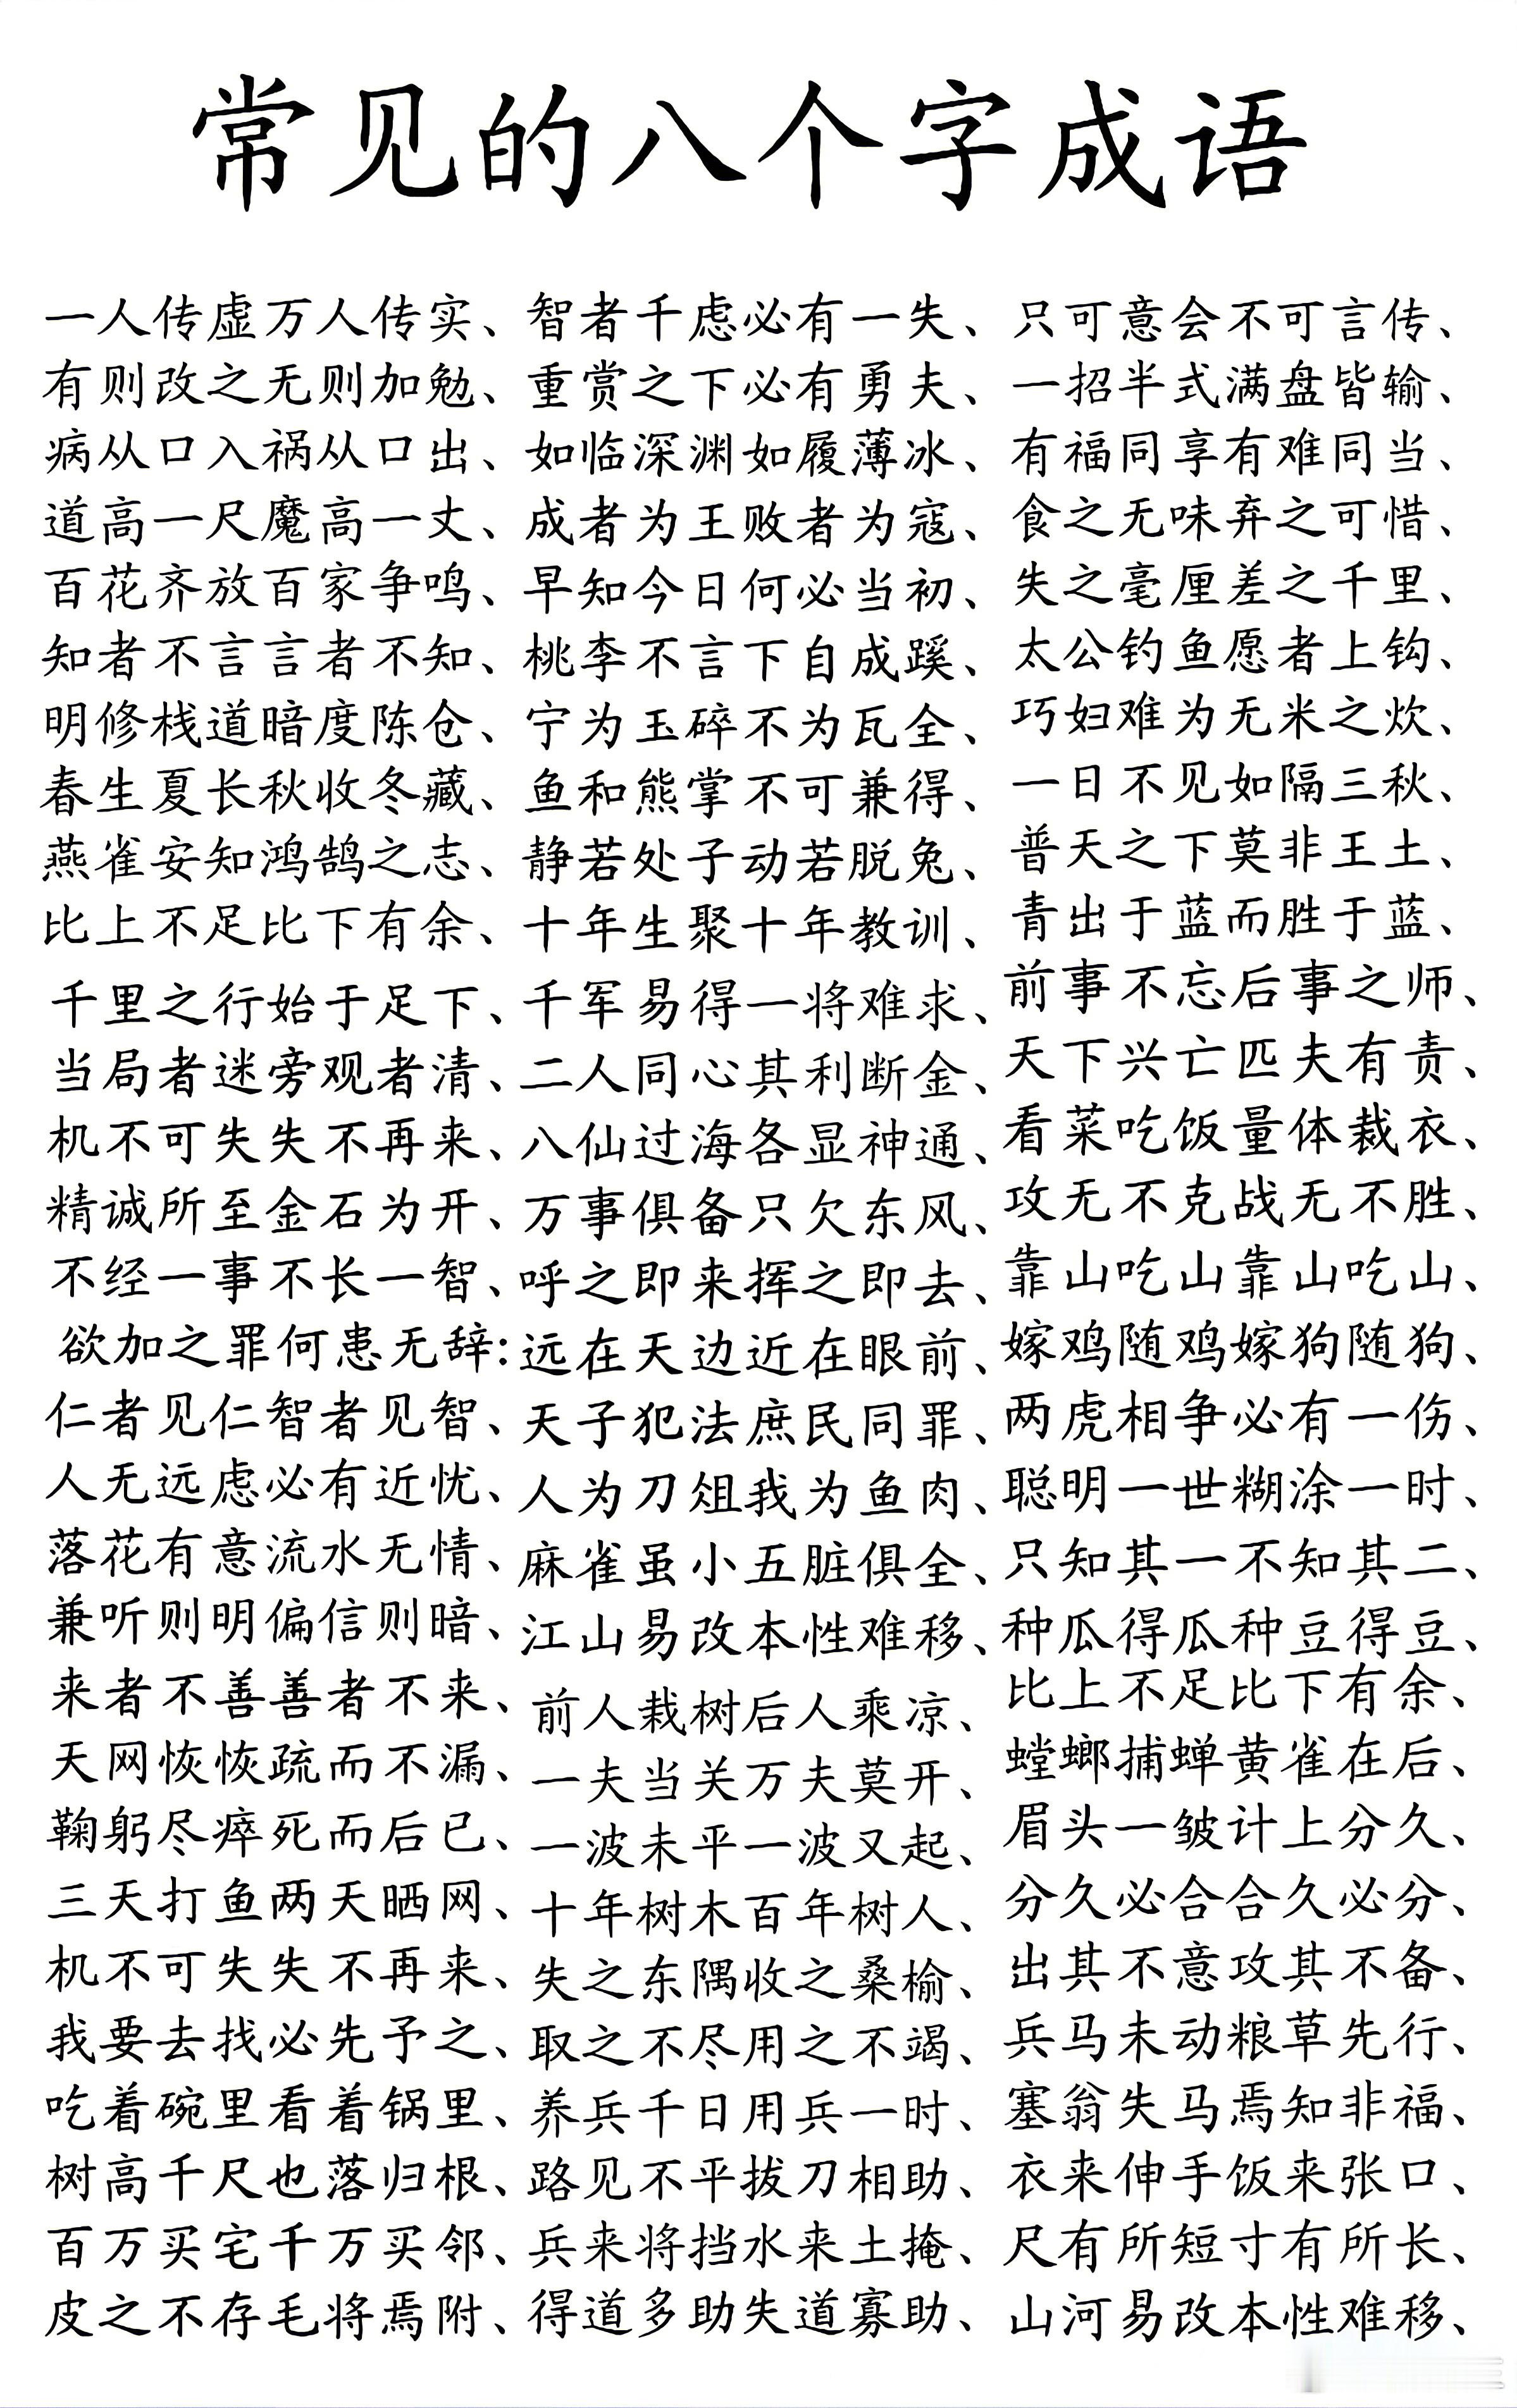 常见的八个字成语
一人传虚万人传实、智者千虑必有一失、只可意会不可言传、
有则改之无则加勉、重赏之下必有勇夫、一招半式满盘皆输、
病从口入祸从口出、如临深渊如履薄冰、有福同享有难同当、
道高一尺魔高一丈、成者为王败者为寇、食之无味弃之可惜、
百花齐放百家争鸣、早知今日何必当初、失之毫厘差之千里、
知者不言言者不知、桃李不言下自成蹊、太公钓鱼愿者上钩、
明修栈道暗度陈仓、宁为玉碎不为瓦全、巧妇难为无米之炊、
春生夏长秋收冬藏、鱼和熊掌不可兼得、一日不见如隔三秋、
燕雀安知鸿鹄之志、静若处子动若脱兔、普天之下莫非王土、
比上不足比下有余、十年生聚十年教训、青出于蓝而胜于蓝、
千里之行始于足下、千军易得一将难求、前事不忘后事之师、
当局者迷旁观者清、二人同心其利断金、天下兴亡匹夫有责、
机不可失失不再来、八仙过海各显神通、看菜吃饭量体裁衣、
精诚所至金石为开、万事俱备只欠东风、攻无不克战无不胜、
不经一事不长一智、呼之即来挥之即去、靠山吃山靠山吃山、
欲加之罪何患无辞:远在天边近在眼前、嫁鸡随鸡嫁狗随狗、
仁者见仁智者见智、天子犯法庶民同罪、两虎相争必有一伤、
人无远虑必有近忧、人为刀俎我为鱼肉、聪明一世糊涂一时、
落花有意流水无情、麻雀虽小五脏俱全、只知其一不知其二、
兼听则明偏信则暗、江山易改本性难移、种瓜得瓜种豆得豆、
来者不善善者不来、前人栽树后人乘凉、比上不足比下有余、
天网恢恢疏而不漏、一夫当关万夫莫开、螳螂捕蝉黄雀在后、
鞠躬尽瘁死而后已、一波未平一波又起、眉头一皱计上分久、
三天打鱼两天晒网、十年树木百年树人、分久必合合久必分、
机不可失失不再来、失之东隅收之桑榆、出其不意攻其不备、
我要去找必先予之、取之不尽用之不竭、兵马未动粮草先行、
吃着碗里看着锅里、养兵千日用兵一时、塞翁失马焉知非福、
树高千尺也落归根、路见不平拔刀相助、衣来伸手饭来张口、
百万买宅千万买邻、兵来将挡水来土掩、尺有所短寸有所长、
皮之不存毛将焉附、得道多助失道寡助、山河易改本性难移、